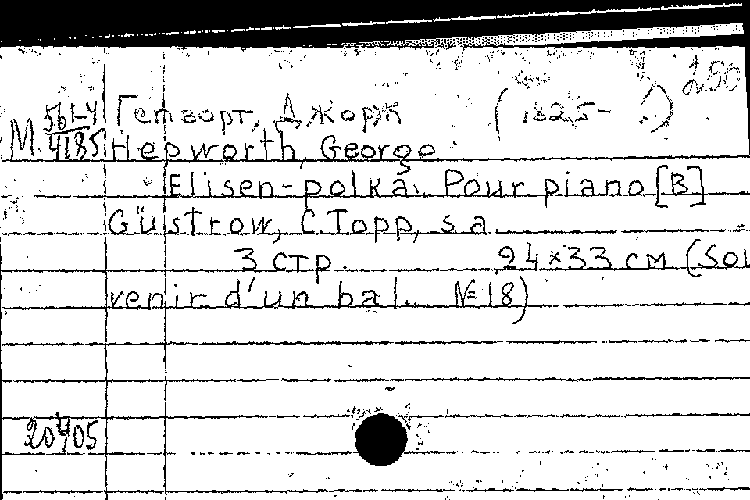 250
М 561-4/4185 Гепворт, Джорж (1825- .)
Hepworth, George
Elisen-polka. Pour piano [B]
Güstrow, C. Topp, s.a.
3 стр. 24×33 см (Sou
venir d'un bal. №18)
20405